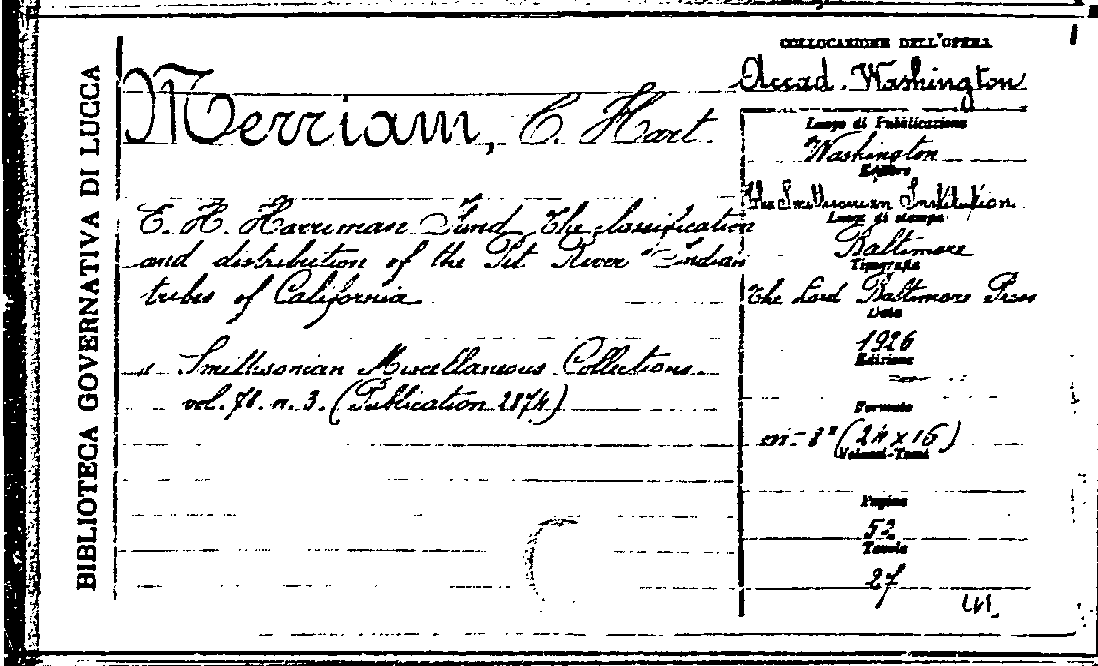 BIBLIOTECA GOVERNATIVA DI LUCCA
Merriam, C. Hart.
E. H. Harriman Fund. The classification
and distribution of the Pit River Indian
tribes of California
Smithsonian Miscellaneous Collections.
vol. 78. n. 3. (Publication 2874)
COLLOCAZIONE DELL'OPERA
Accad. Washington
Luogo di Pubblicazione
Washington
Editore
The Smithsonian Institution
Luogo di stampa
Baltimore
Tipografia
The Lord Baltimore Press
Data
1926
Edizione
Formato
in-8° (24 x 16)
Volumi-Tomi
Pagine
52
Tavole
27